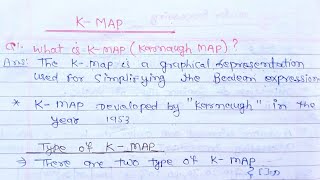 K-MAP
Q1. What is K-MAP (Karnaugh MAP)?
Ans: The K-map is a graphical representation
used for simplifying the Boolean expression
* K-MAP Developed by "Karnaugh" in the
Year 1953
Type of K-MAP
⇒ There are two type of K-MAP